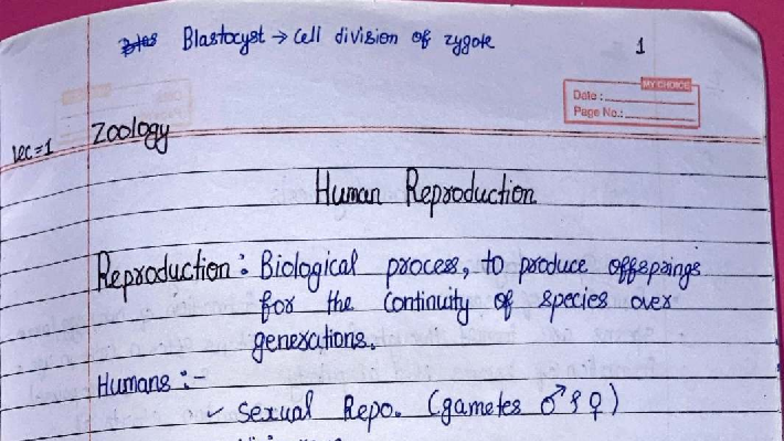 Blastocyst → Cell division of zygote
1
MY CHOICE
Date :
Page No.:
lec=1 Zoology
Human Reproduction
Reproduction : Biological process, to produce offsprings
for the continuity of species over
generations.
Humans :-
✓ Sexual Repo. (gametes ♂ & ♀)